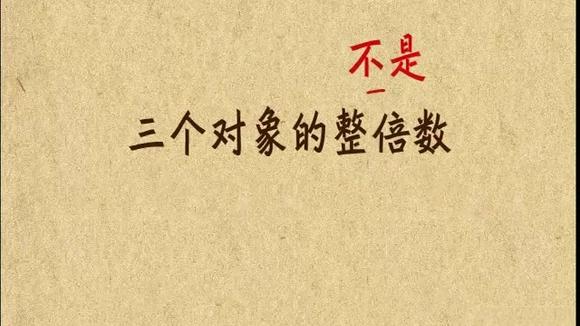 不是
三个对象的整倍数